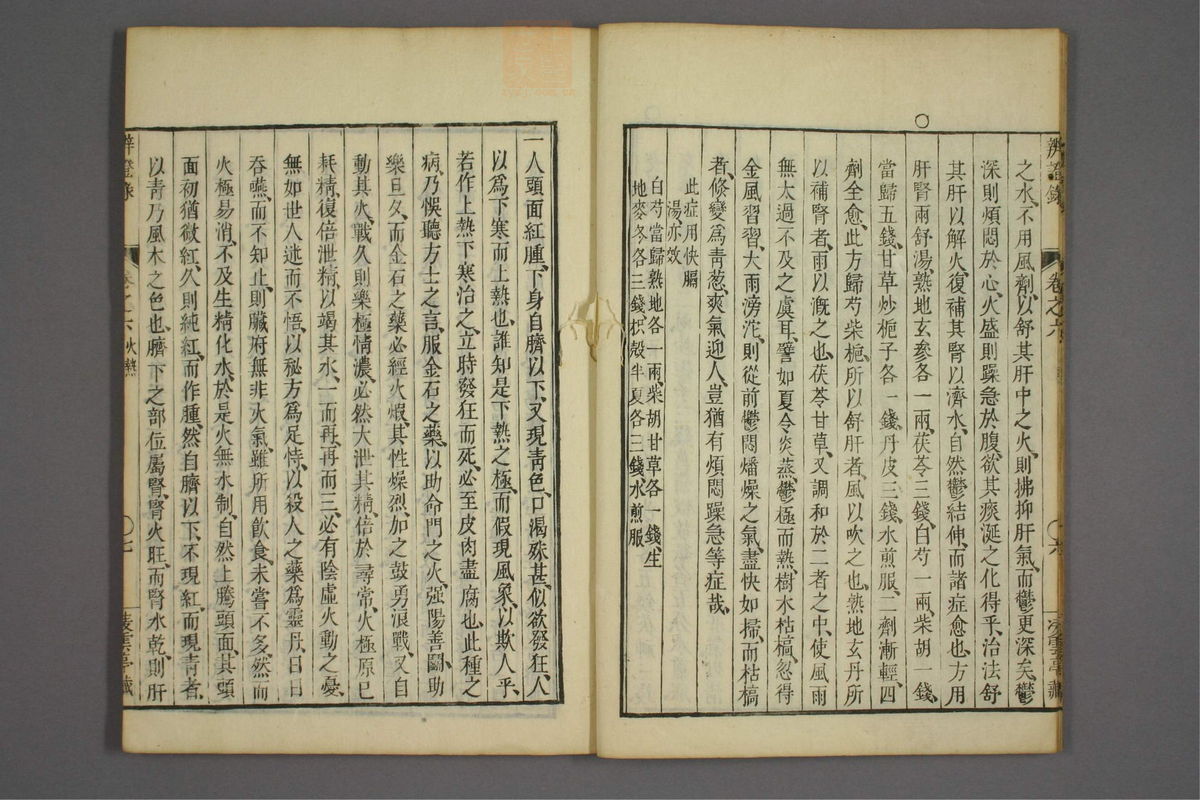 辨證錄 卷之六 六
之水、不用風劑、以舒其肝中之火、則拂抑肝氣、而鬱更深矣、鬱
深則煩悶於心、火盛則躁急於腹、欲其痰涎之化得乎、治法舒
其肝以解火、復補其腎以濟水、自然鬱結伸、而諸症愈也、方用
肝腎兩舒湯、熟地玄參各一兩、茯苓三錢、白芍一兩、柴胡一錢、
當歸五錢、甘草炒梔子各一錢、丹皮三錢、水煎服、二劑漸輕、四
劑全愈、此方歸芍柴梔、所以舒肝者、風以吹之也、熟地玄丹、所
以補腎者、雨以溉之也、茯苓甘草、又調和於二者之中、使風雨
無太過不及之虞耳、譬如夏令炎蒸、鬱極而熱、樹木枯槁、忽得
金風習習、大雨滂沱、則從前鬱悶燔燥之氣、盡快如掃、而枯槁
者、倏變為青葱、爽氣迎人、豈猶有煩悶躁急等症哉、
此症用快膈
湯、亦效
白芍當歸熟地各一兩、柴胡甘草各一錢、生
地麥冬各三錢、枳殼半夏各三錢、水煎服
一人頭面紅腫、下身自臍以下、又現青色、口渴殊甚、似欲發狂、人
以爲下寒而上熱也、誰知是下熱之極、而假現風象以欺人乎、
若作上熱下寒治之、立時發狂而死、必至皮肉盡腐也、此種之
病、乃悞聽方士之言、服金石之藥、以助命門之火、强陽善鬬、助
樂旦夕、而金石之藥、必經火煆、其性燥烈、加之鼓勇浪戰、又自
動其火、戰久則樂極情濃、必然大泄其精、倍於尋常、火極原已
耗精、復倍泄精、以竭其水、一而再、再而三、必有陰虛火動之憂、
無如世人迷而不悟、以秘方爲足恃、以殺人之藥、爲靈丹、日日
吞嚥、而不知止、則臟府無非火氣、雖所用飲食、未嘗不多、然而
火極易消、不及生精化水、於是火無水制、自然上騰頭面、其頭
面初猶微紅、久則純紅、而作腫、然自臍以下、不現紅、而現青者、
以青乃風木之色也、臍下之部位屬腎、腎火旺、而腎水乾、則肝
卷之六 火熱